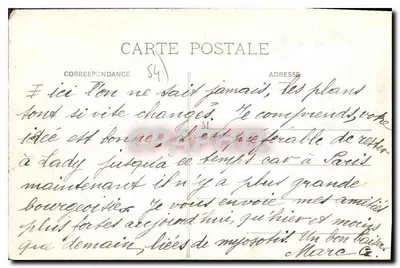 CARTE POSTALE
CORRESPONDANCE
ADRESSE
54)
ici l'on ne sait jamais, les plans
sont si vite changés. Je comprends, votre
idée est bonne, il est préférable de rester
à Lady jusqu'à ce temps car à Paris
maintenant il n'y a plus grande
bourgeoisie. Je vous envoie mes amitiés
plus fortes aujourd'hui, qu'hier et moins
que demain, liées de myosotis. Un bon
Marc